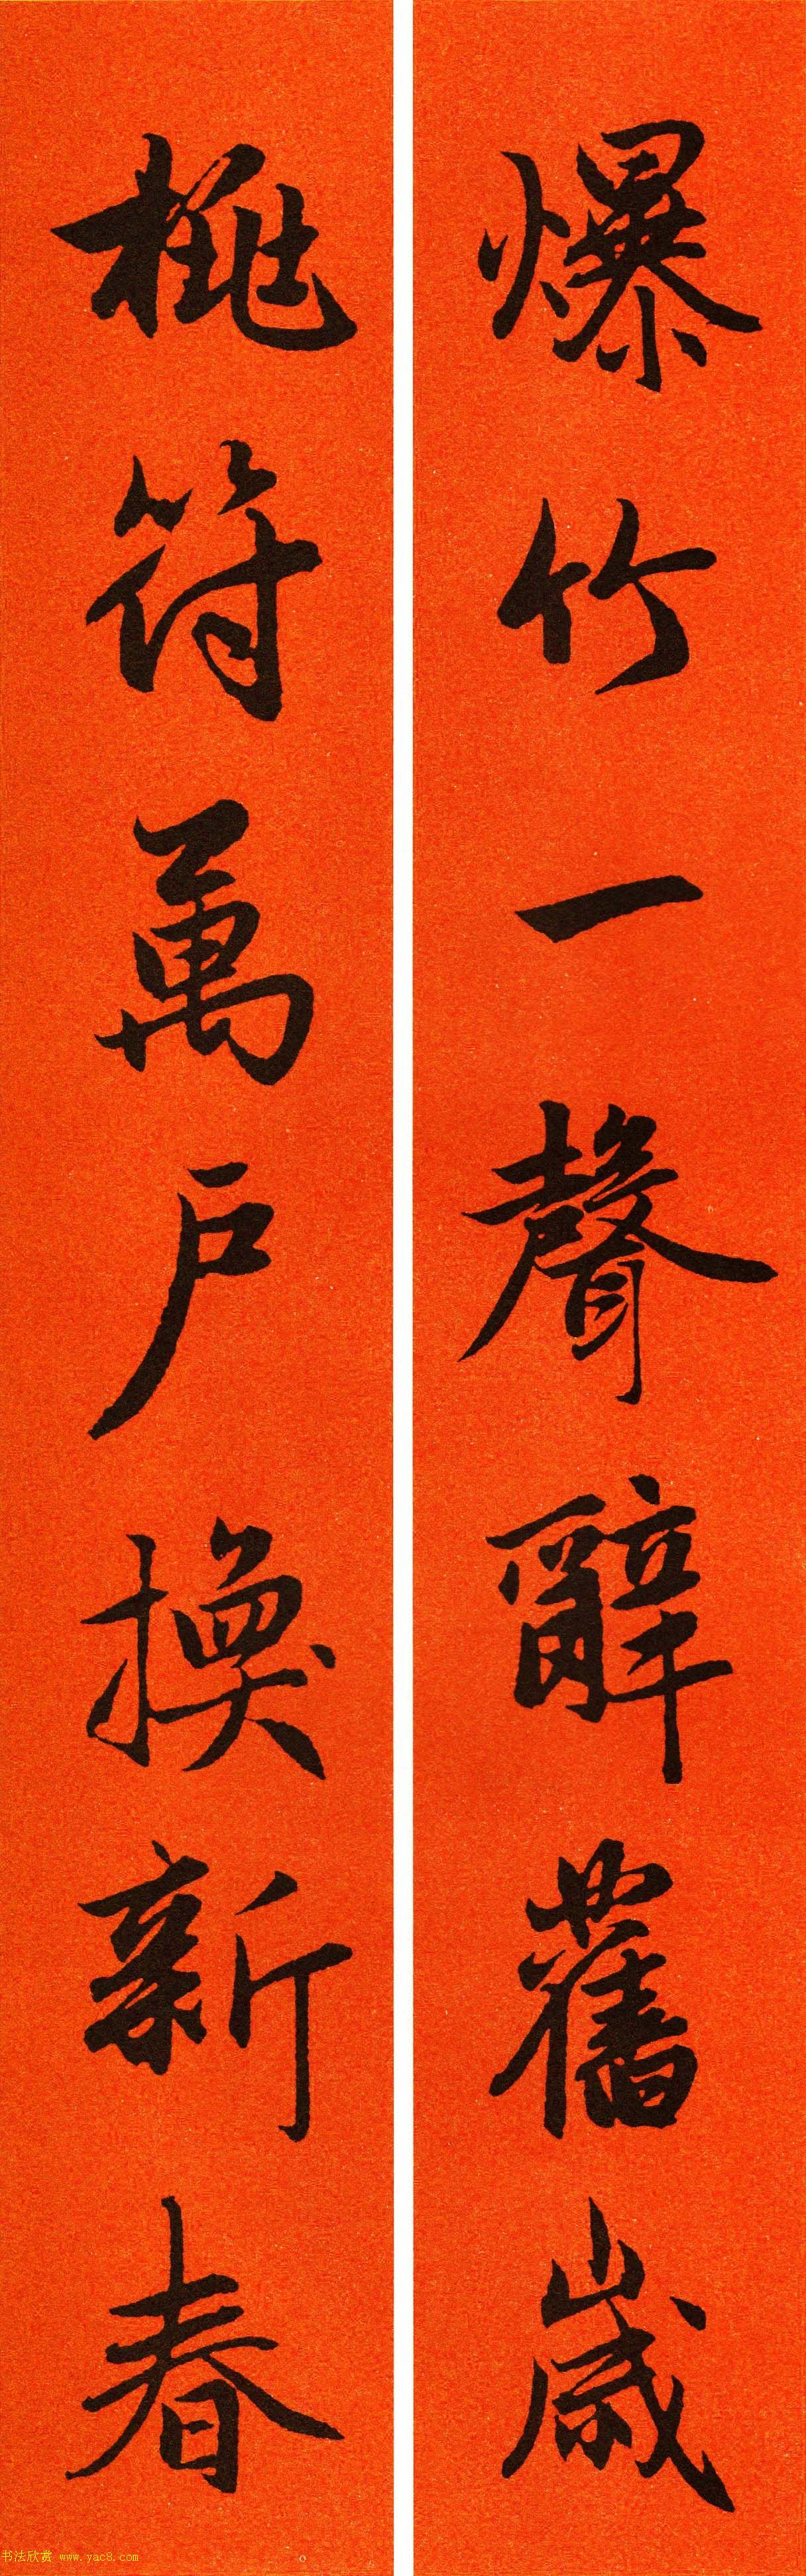 爆竹一聲辭舊歲
桃符萬戶換新春
书法欣赏 www.yac8.com